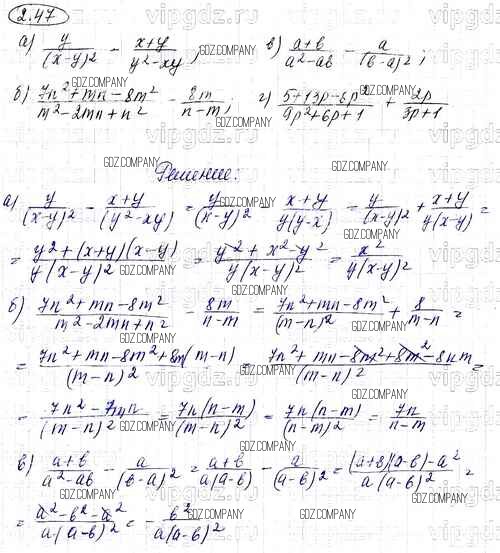 2.47
а) y/(x-y)² - (x+y)/(y²-xy); в) (a+b)/(a²-ab) - a/(b-a)²;
б) (7n²+mn-8m²)/(m²-2mn+n²) - 8m/(n-m); г) (5+13p-6p²)/(9p²+6p+1) + 2p/(3p+1)
Решение:
а) y/(x-y)² - (x+y)/(y²-xy) = y/(x-y)² - (x+y)/(y(y-x)) = y/(x-y)² + (x+y)/(y(x-y)) =
= (y²+(x+y)(x-y))/(y(x-y)²) = (y²+x²-y²)/(y(x-y)²) = x²/(y(x-y)²)
б) (7n²+mn-8m²)/(m²-2mn+n²) - 8m/(n-m) = (7n²+mn-8m²)/(m-n)² + 8/(m-n) =
= (7n²+mn-8m²+8m(m-n))/(m-n)² = (7n²+mn-8m²+8m²-8nm)/(m-n)² =
= (7n²-7mn)/(m-n)² = 7n(n-m)/(m-n)² = 7n(n-m)/(n-m)² = 7n/(n-m)
в) (a+b)/(a²-ab) - a/(b-a)² = (a+b)/(a(a-b)) - a/(a-b)² = ((a+b)(a-b)-a²)/(a(a-b)²) =
= (a²-b²-a²)/(a(a-b)²) = - b²/(a(a-b)²)
vipgdz.ru
GDZ.COMPANY